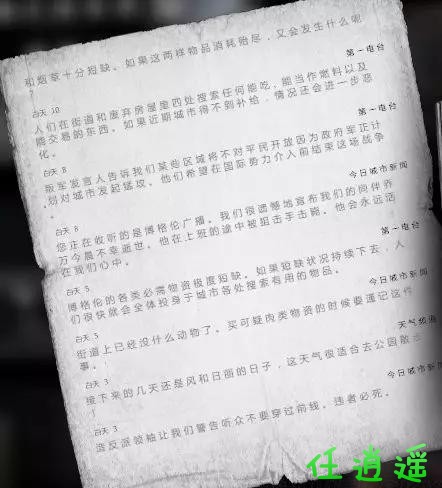 和烟草十分短缺。如果这两样物品消耗殆尽，又会发生什么呢
！
第一电台
白天 10
人们在街道和废弃房屋里四处搜索任何能吃，能当作燃料以及
能交易的东西。如果近期城市得不到补给，情况还会进一步恶
化。
第一电台
白天 8
叛军发言人告诉我们某些区域将不对平民开放因为政府军正计
划对城市发起猛攻。他们希望在国际势力介入前结束这场战争
。
今日城市新闻
白天 8
您正在收听的是博格伦广播。我们很遗憾地宣布我们的同伴乔
万今晨不幸逝世。他在上班的途中被狙击手击毙。他会永远活
在我们心中。
第一电台
白天 5
博格伦的各类必需物资极度短缺。如果短缺状况持续下去，人
们很快就会全体投身于城市各处搜索有用的物品。
今日城市新闻
白天 5
街道上已经没什么动物了。买可疑肉类物资的时候要谨记这件
事。
天气频道
白天 3
接下来的几天还是风和日丽的日子，这天气很适合去公园散步
！
今日城市新闻
白天 3
造反派领袖让我们警告听众不要穿过前线。违者必死。
任逍遥